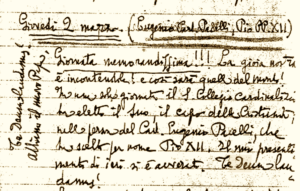 Giovedì 2 marzo. (Eugenio Card. Pacelli, Pio PP. XII)
Te Deum laudamus!
Abbiamo il nuovo Papa!
Giornata memorandissima!!! La gioia nostra
è incontenibile! e così sarà quella del mondo!
In una sola giornata il S. Collegio Cardinalizio
ha eletto il suo, il capo della Cristianità,
nella persona del Card. Eugenio Pacelli, che
ha scelto per nome Pio XII. Il mio presenti-
mento di ieri si è avverato. Te Deum lau-
damus!